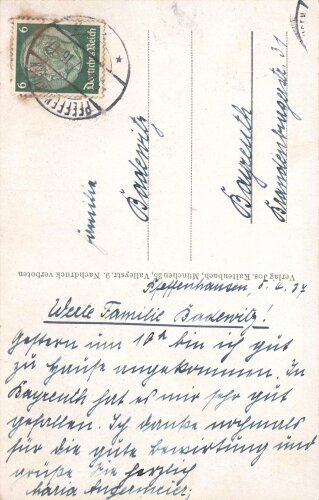 6 Deutsches Reich 6
PFEFFEN
Familie
Badewitz
Bayreuth
Brandenburgerstr. 31
Verlag Jos. Kaltenbach, München 25, Valleystr. 9. Nachdruck verboten
Pfeffenhausen, 37
Werte Familie Badewitz!
Gestern um 10h bin ich gut
zu Hause angekommen. In
Bayreuth hat es mir sehr gut
gefallen. Ich danke nochmals
für die gute Bewirtung und
grüße Sie herzlich
Maria